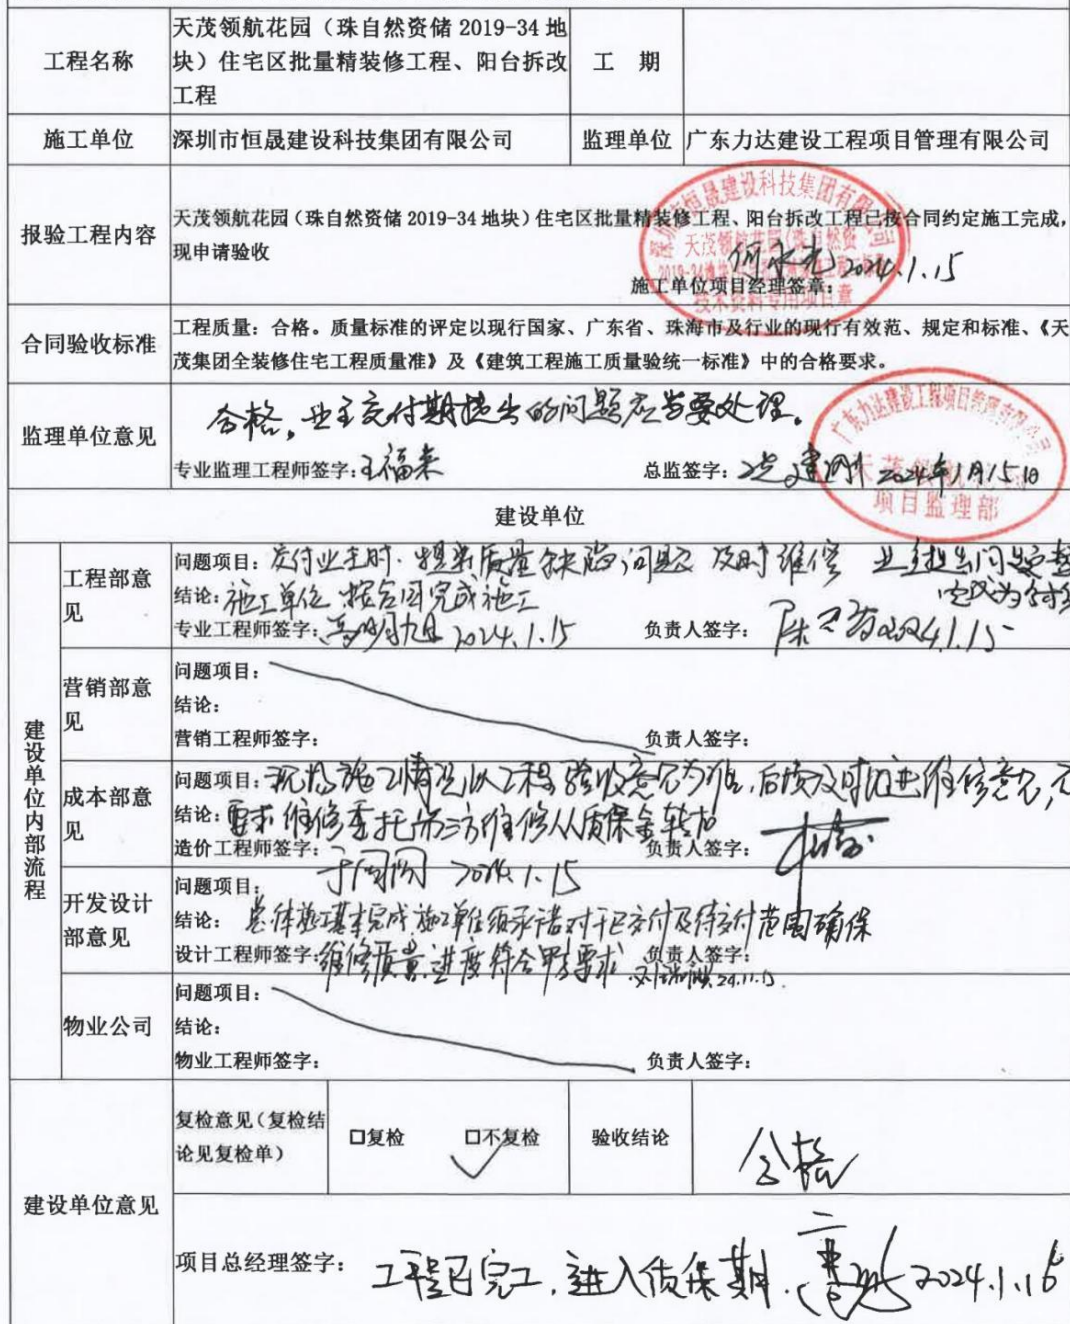 工程名称
天茂领航花园（珠自然资储 2019-34 地
块）住宅区批量精装修工程、阳台拆改
工程
工 期
施工单位
深圳市恒晟建设科技集团有限公司
监理单位
广东力达建设工程项目管理有限公司
报验工程内容
天茂领航花园（珠自然资储 2019-34 地块）住宅区批量精装修工程、阳台拆改工程已按合同约定施工完成，
现申请验收
何永光 2024.1.15
施工单位项目经理签章：
深圳市恒晟建设科技集团有限公司
天茂领航花园(珠自然资
技术资料专用项目章
合同验收标准
工程质量：合格。质量标准的评定以现行国家、广东省、珠海市及行业的现行有效范、规定和标准、《天
茂集团全装修住宅工程质量准》及《建筑工程施工质量验统一标准》中的合格要求。
监理单位意见
合格，业主交付期提出的问题应当要处理。
专业监理工程师签字：王福来
总监签字： 2024年1月15日
广东力达建设工程项目管理有限公司
天茂领航
项目监理部
建设单位
建设单位内部流程
工程部意
见
问题项目：交付业主时. 质量缺陷问题 及时维修 业主提出问题整
完成为
结论：施工单位 按合同完成施工
专业工程师签字： 2024.1.15
负责人签字：陈 2024.1.15
营销部意
见
问题项目：
结论：
营销工程师签字：
负责人签字：
成本部意
见
问题项目：现场施工情况以工程验收意见为准，后续及时跟进维修意见，
结论：要求维修委托第三方维修从质保金转扣
造价工程师签字： 2024.1.15
负责人签字：
开发设计
部意见
问题项目：
结论：总体施工基本完成，施工单位须承诺对于已交付及待交付范围确保
设计工程师签字：维修质量，进度符合甲方要求
负责人签字：
24.1.15.
物业公司
问题项目：
结论：
物业工程师签字：
负责人签字：
建设单位意见
复检意见（复检结
论见复检单）
口复检
口不复检
验收结论
合格
项目总经理签字：
工程已完工，进入质保期. 2024.1.16